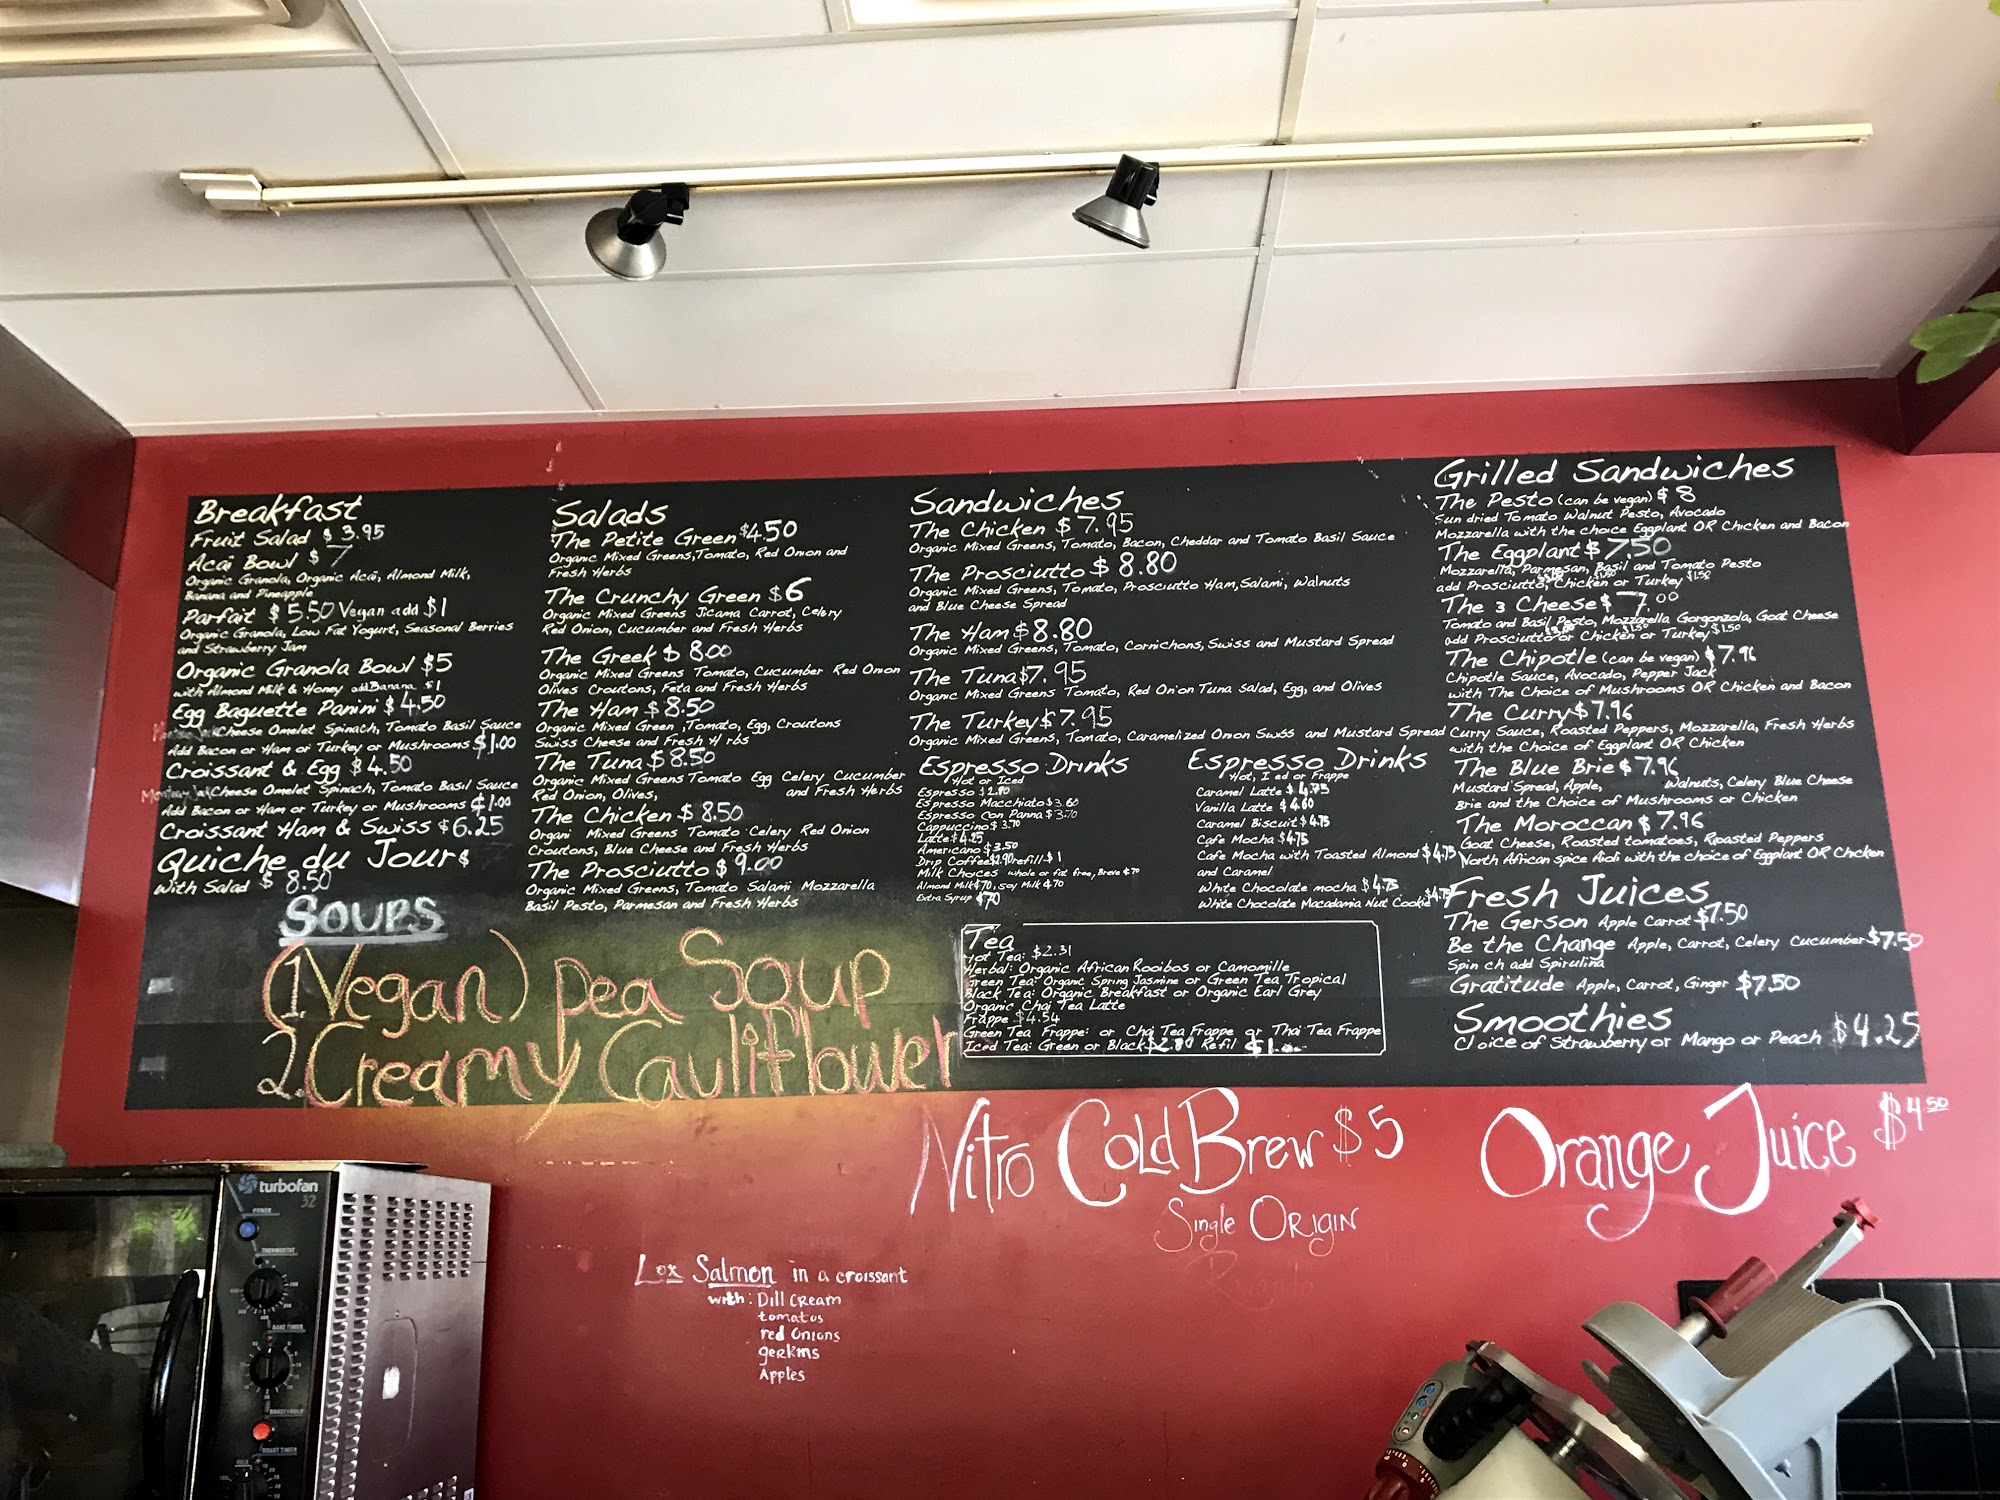 Breakfast
Fruit Salad $3.95
Acai Bowl $7
Organic Granola, Organic Acai, Almond Milk,
Banana and Pineapple
Parfait $5.50 Vegan add $1
Organic Granola, Low Fat Yogurt, Seasonal Berries
and Strawberry Jam
Organic Granola Bowl $5
with Almond Milk & Honey add Banana $1
Egg Baguette Panini $4.50
Cheese Omelet Spinach, Tomato Basil Sauce
Add Bacon or Ham or Turkey or Mushrooms $1.00
Croissant & Egg $4.50
Cheese Omelet Spinach, Tomato Basil Sauce
Add Bacon or Ham or Turkey or Mushrooms $1.00
Croissant Ham & Swiss $6.25
Quiche du Jour $
With Salad $8.50
SOUPS
1. (Vegan) pea Soup
2. Creamy Cauliflower
Salads
The Petite Green $4.50
Organic Mixed Greens, Tomato, Red Onion and
Fresh Herbs
The Crunchy Green $6
Organic Mixed Greens Jicama Carrot, Celery
Red Onion, Cucumber and Fresh Herbs
The Greek $8.00
Organic Mixed Greens Tomato, Cucumber Red Onion
Olives Croutons, Feta and Fresh Herbs
The Ham $8.50
Organic Mixed Green ,Tomato, Egg, Croutons
Swiss Cheese and Fresh H rbs
The Tuna $8.50
Organic Mixed Greens Tomato Egg Celery Cucumber
Red Onion, Olives, and Fresh Herbs
The Chicken $8.50
Organi Mixed Greens Tomato Celery Red Onion
Croutons, Blue Cheese and Fresh Herbs
The Prosciutto $9.00
Organic Mixed Greens, Tomato Salami Mozzarella
Basil Pesto, Parmesan and Fresh Herbs
Sandwiches
The Chicken $7.95
Organic Mixed Greens, Tomato, Bacon, Cheddar and Tomato Basil Sauce
The Prosciutto $8.80
Organic Mixed Greens, Tomato, Prosciutto Ham, Salami, Walnuts
and Blue Cheese Spread
The Ham $8.80
Organic Mixed Greens, Tomato, Cornichons, Swiss and Mustard Spread
The Tuna $7.95
Organic Mixed Greens Tomato, Red Onion Tuna Salad, Egg, and Olives
The Turkey $7.95
Organic Mixed Greens, Tomato, Caramelized Onion Swiss and Mustard Spread
Espresso Drinks
Hot or Iced
Espresso $2.80
Espresso Macchiato $3.60
Espresso Con Panna $3.70
Cappuccino $3.70
Latte $4.25
Americano $3.50
Drip Coffee $2.90 refill $1
Milk Choices whole or fat free, Breve $70
Almond Milk $70, soy Milk $70
Extra Syrup $70
Espresso Drinks
Hot, I ed or Frappe
Caramel Latte $4.75
Vanilla Latte $4.60
Caramel Biscuit $4.75
Cafe Mocha $4.75
Cafe Mocha with Toasted Almond $4.75
and Caramel
White Chocolate mocha $4.75
White Chocolate Macadamia Nut Cookie $4.75
Tea
Hot Tea: $2.31
Herbal: Organic African Rooibos or Camomille
Green Tea: Organic Spring Jasmine or Green Tea Tropical
Black Tea: Organic Breakfast or Organic Earl Grey
Organic Chai Tea Latte
Frappe $4.54
Green Tea Frappe: or Chai Tea Frappe or Thai Tea Frappe
Iced Tea: Green or Black $2.89 Refil $1
Grilled Sandwiches
The Pesto (can be vegan) $8
Sun dried Tomato Walnut Pesto, Avocado
Mozzarella with the choice Eggplant OR Chicken and Bacon
The Eggplant $7.50
Mozzarella, Parmesan, Basil and Tomato Pesto
add Prosciutto, Chicken or Turkey $1.50
The 3 Cheese $7.00
Tomato and Basil Pesto, Mozzarella Gorgonzola, Goat Cheese
add Prosciutto or Chicken or Turkey $1.50
The Chipotle (can be vegan) $7.96
Chipotle Sauce, Avocado, Pepper Jack
with The Choice of Mushrooms OR Chicken and Bacon
The Curry $7.96
Curry Sauce, Roasted Peppers, Mozzarella, Fresh Herbs
with the Choice of Eggplant OR Chicken
The Blue Brie $7.96
Mustard Spread, Apple, Walnuts, Celery Blue Cheese
Brie and the Choice of Mushrooms or Chicken
The Moroccan $7.96
Goat Cheese, Roasted tomatoes, Roasted Peppers
North African spice Aioli with the choice of Eggplant OR Chicken
Fresh Juices
The Gerson Apple Carrot $7.50
Be the Change Apple, Carrot, Celery Cucumber $7.50
Spin ch add Spirulina
Gratitude Apple, Carrot, Ginger $7.50
Smoothies
Choice of Strawberry or Mango or Peach $4.25
Nitro Cold Brew $5
Single Origin
Orange Juice $4.50
Lox Salmon in a croissant
with: Dill cream
tomatos
red Onions
gerkins
Apples
turbofan
32
POWER
THERMOSTAT
BAKE TIMER
ROAST TIMER